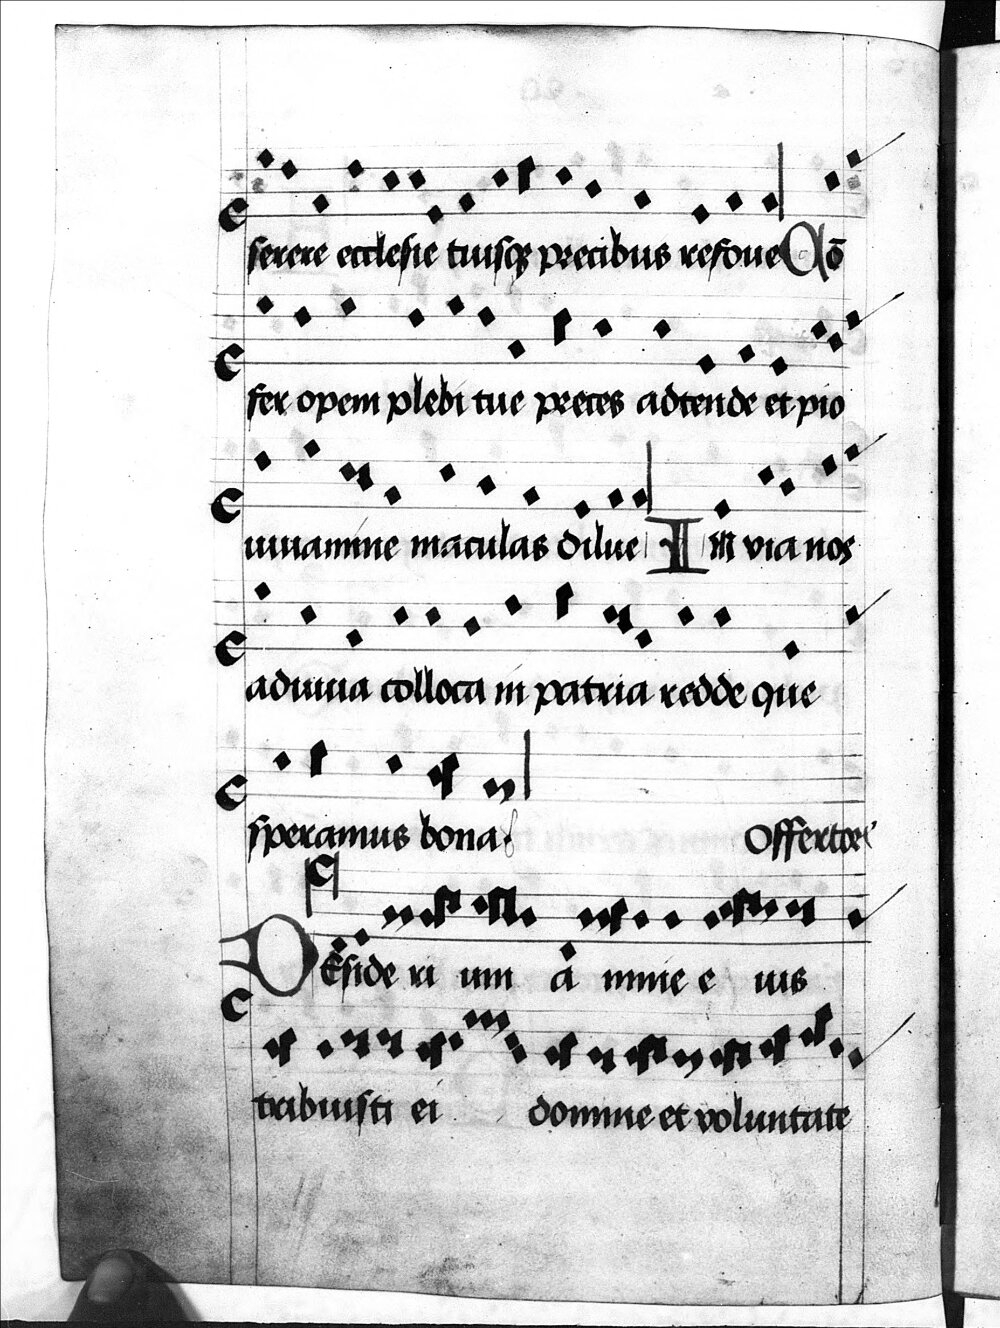 serere ecclesie tuisqȝ precibus refoue Cōfer opem plebi tue preces adtende et pio
iuuamine maculas dilue In via nos
adiuua colloca in patria redde que
speramus bona Offertor
Deside ri um a nime e ius
tribuisti ei domine et voluntate